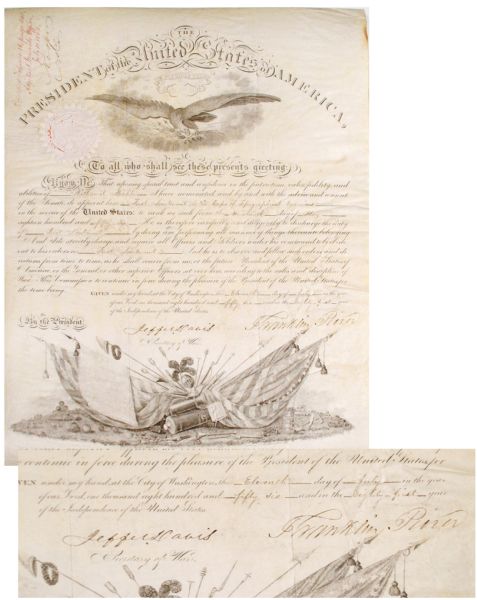 THE
PRESIDENT of the United States of AMERICA,
To all who shall see these presents greeting
Know Ye That reposing special trust and confidence in the patriotism, valor, fidelity, and
abilities of I have nominated, and by and with the advice and consent
of the Senate, do appoint him First Lieutenant in the Corps of Topographical
in the service of the United States: to rank as such from the day of
eighteen hundred and fifty six He is therefore carefully and diligently to discharge the duty
of First by doing and performing all manner of things thereunto belonging.
And I do strictly charge, and require all Officers and Soldiers under his command to be obedi-
ent to his orders as First And he is to observe and follow such orders, and di-
rections from time to time, as he shall receive from me, or the future President of the United States
of America, or the General or other superior Officers set over him, according to the rules and discipline of
War. This Commission to continue in force during the pleasure of the President of the United States, for
the time being.
GIVEN under my hand, at the City of Washington, this Eleventh day of July in the year
of our Lord, one thousand eight hundred and fifty six and in the Eighty first year
of the Independence of the United States.
By the President
Jeffer Davis
Secretary of War.
Franklin Pierce
continue in force during the pleasure of the President of the United States, for
VEN under my hand, at the City of Washington, this Eleventh day of July in the year
of our Lord, one thousand eight hundred and fifty six and in the Eighty first year
of the Independence of the United States.
Jeffer Davis
Secretary of War.
Franklin Pierce